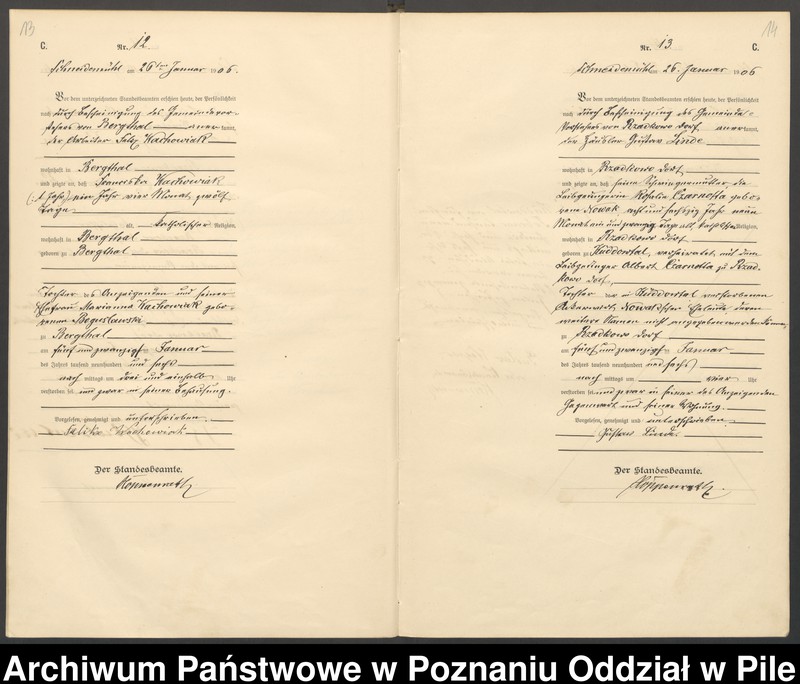 13
C.
Nr. 12.
Schneidemühl am 26ten Januar 1906.
Vor dem unterzeichneten Standesbeamten erschien heute, der Persönlichkeit
nach durch Bescheinigung des Gemeindevor-
stehers von Bergthal anerkannt,
der Arbeiter Wachowiak
wohnhaft in Bergthal
und zeigte an, daß Franceska Wachowiak
vier Monat zwölf
Tage
alt, katholischer Religion,
wohnhaft in Bergthal
geboren zu Bergthal
Tochter des Anzeigenden und seiner
Ehefrau Marianna Wachowiak gebo-
renen Boguslawski
zu Bergthal
am fünf und zwanzigsten Januar
des Jahres tausend neunhundert und sechs
nach mittags um drei und einhalb Uhr
verstorben sei und zwar in seiner Behausung.
Vorgelesen, genehmigt und unterschrieben.
Wachowiak
Der Standesbeamte.
14
Nr. 13.
C.
Schneidemühl am 26. Januar 1906
Vor dem unterzeichneten Standesbeamten erschien heute, der Persönlichkeit
nach durch Bescheinigung des Gemeinde-
Vorstehers von Rzadkowo Dorf anerkannt,
der Häusler Gustav Linde
wohnhaft in Rzadkowo Dorf
und zeigte an, daß seine Schwiegermutter die
Leibgedingerin Rosalie Czarnotta gebo-
rene Nowak acht und sechszig Jahr neun
Monat ein und zwanzig Tage alt, Religion,
wohnhaft in Rzadkowo Dorf
geboren zu Küddowtal, verheiratet mit dem
Leibgedinger Albert Czarnotta zu Rzad-
kowo Dorf,
Tochter der in Küddowtal verstorbenen
Ackerwirt Nowak'schen Eheleute deren
weitere Namen nicht angegeben werden können
zu Rzadkowo Dorf
am fünf und zwanzigsten Januar
des Jahres tausend neunhundert und sechs
nach mittags um vier Uhr
verstorben sei und zwar in seiner des Anzeigenden
Gegenwart und seiner Wohnung.
Vorgelesen, genehmigt und unterschrieben
Gustav Linde.
Der Standesbeamte.
Archiwum Państwowe w Poznaniu Oddział w Pile